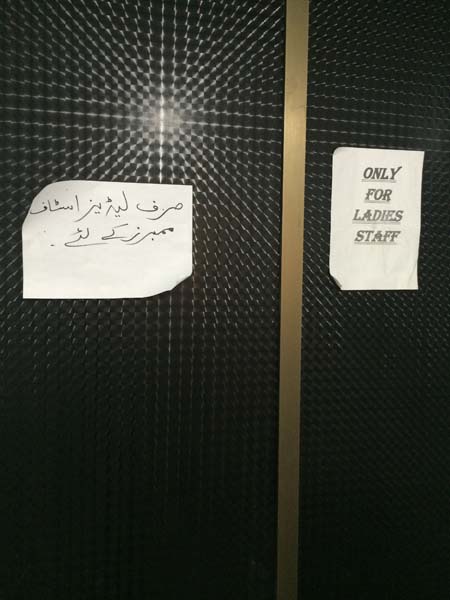 صرف لیڈیز اسٹاف
ممبرز کے لئے.
ONLY
FOR
LADIES
STAFF